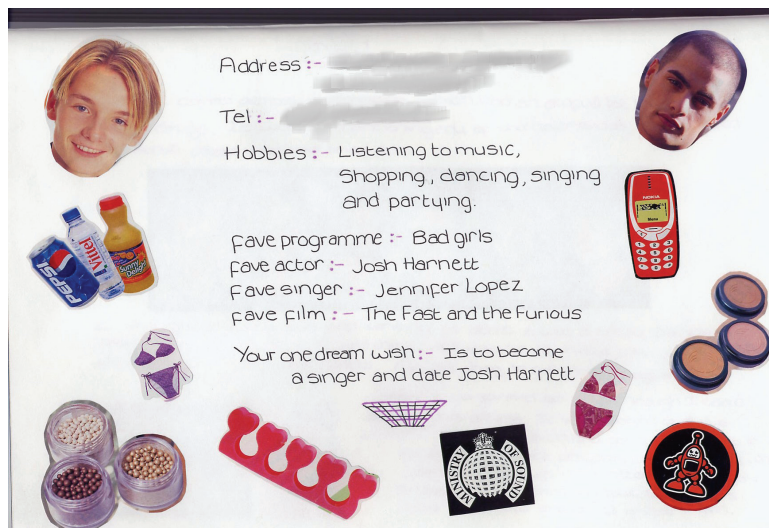 Address :-
Tel :-
Hobbies :- Listening to music,
Shopping, dancing, singing
and partying.
fave programme :- Bad girls
fave actor :- Josh Harnett
fave singer :- Jennifer Lopez
fave film :- The Fast and the Furious
Your one dream wish :- Is to become
a singer and date Josh Harnett
PEPSI
Vittel
Sunny Delight
NOKIA
Menu
MINISTRY OF SOUND